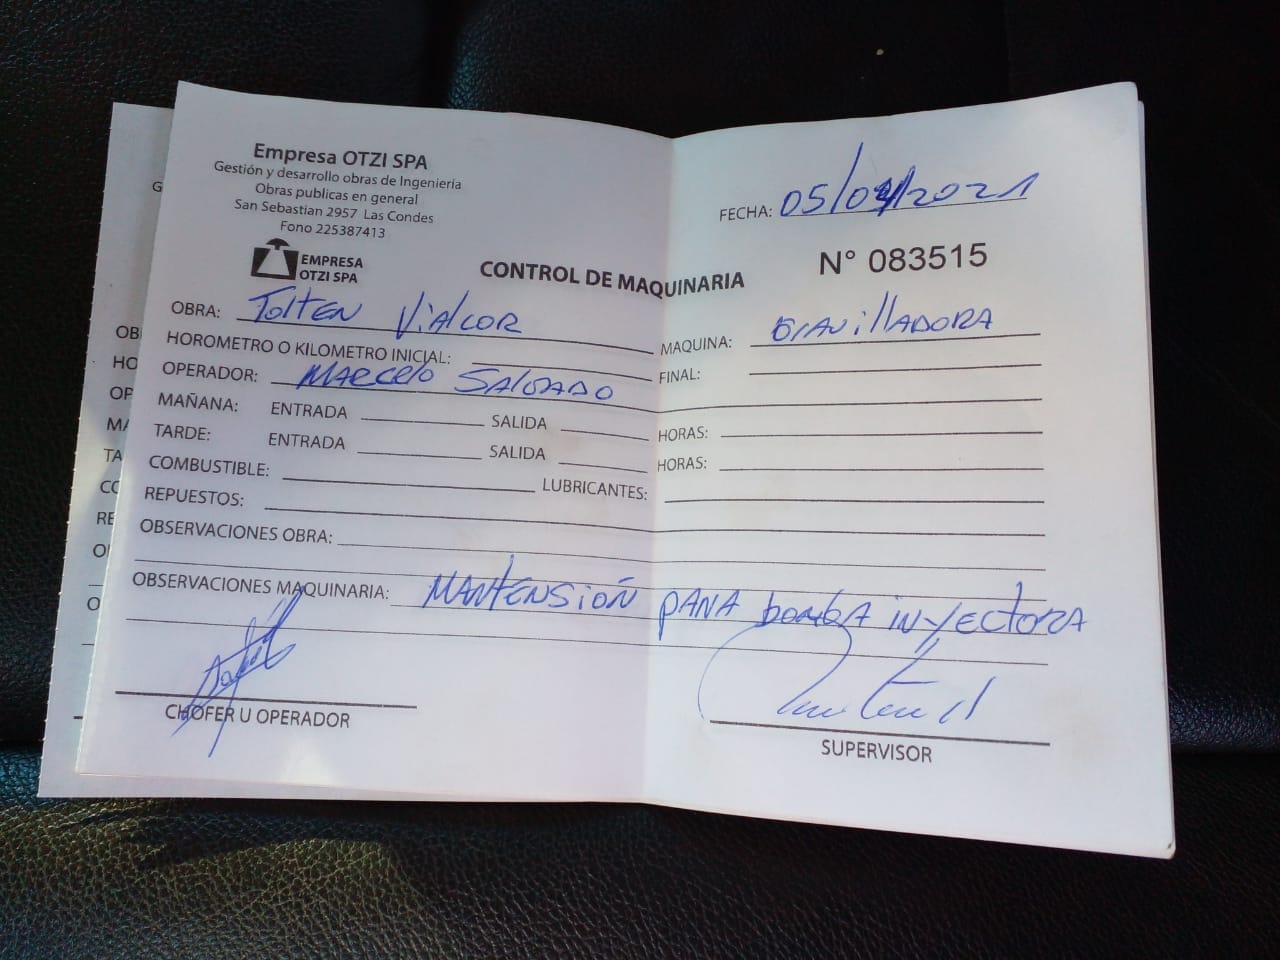 Empresa OTZI SPA
Gestión y desarrollo obras de Ingeniería
Obras publicas en general
San Sebastian 2957 Las Condes
Fono 225387413
EMPRESA
OTZI SPA
FECHA: 05/01/2021
CONTROL DE MAQUINARIA
N° 083515
OBRA: Tolten Vialcor
MAQUINA: GravillADORA
HOROMETRO O KILOMETRO INICIAL:
FINAL:
OPERADOR: MARcelo SALGADO
MAÑANA: ENTRADA SALIDA HORAS:
TARDE: ENTRADA SALIDA HORAS:
COMBUSTIBLE: LUBRICANTES:
REPUESTOS:
OBSERVACIONES OBRA:
OBSERVACIONES MAQUINARIA: MANTENSIÓN PANA bomba inyectora
CHOFER U OPERADOR
SUPERVISOR
G
OB
HO
OP
MA
TA
CO
RE
O
O